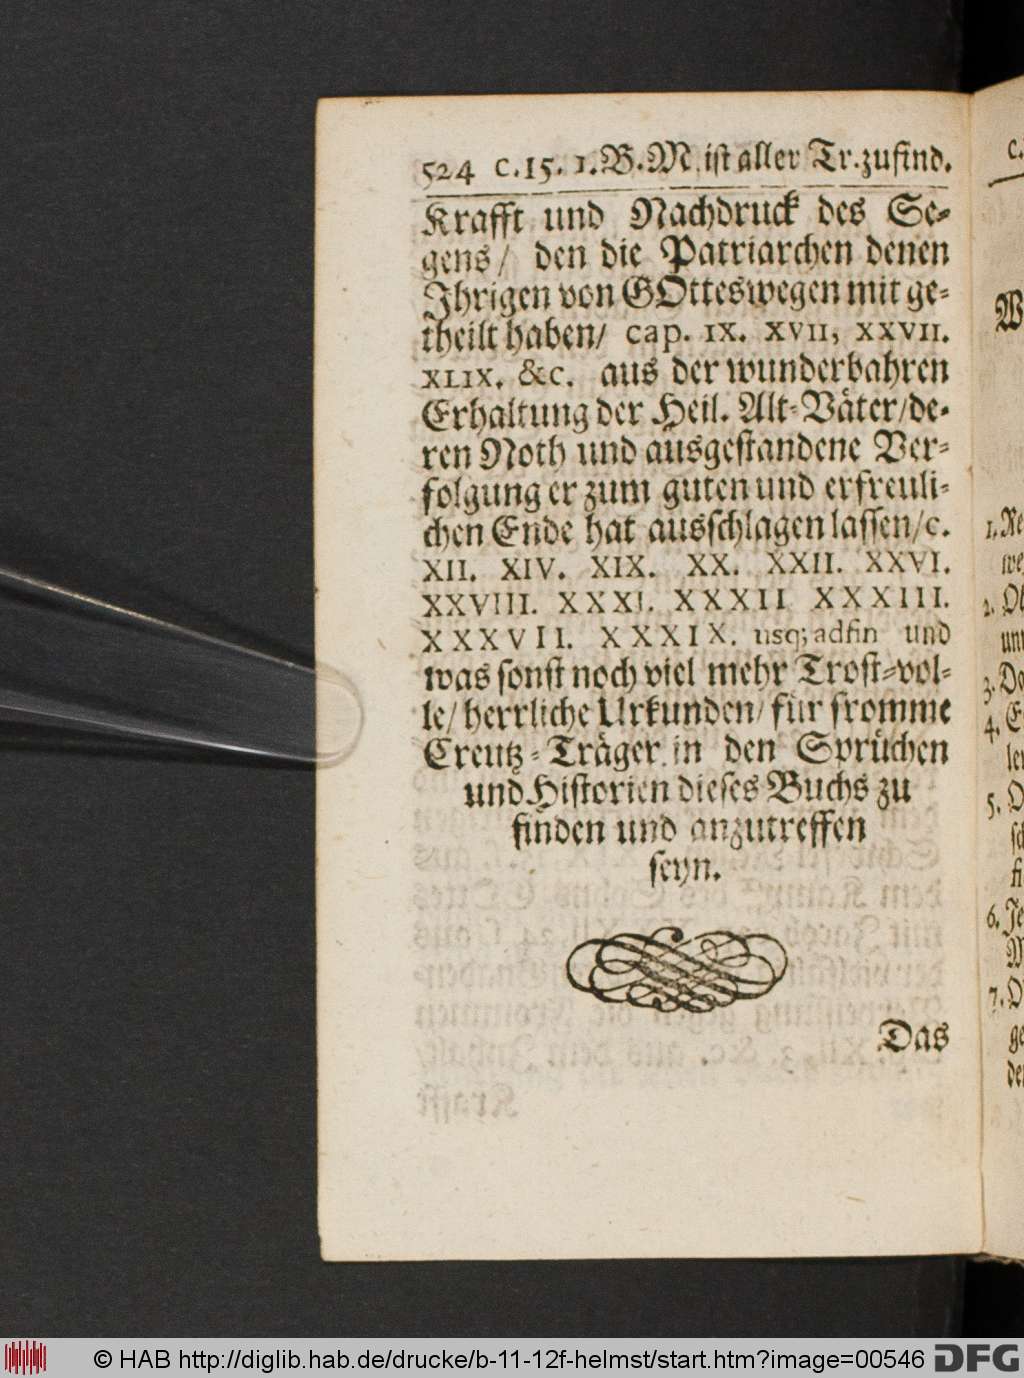 524 C.15. 1.B.M. ist aller Tr.zufind.
Krafft und Nachdruck des Se-
gens/ den die Patriarchen denen
Ihrigen von GOttes wegen mit ge-
theilt haben/ cap. IX. XVII, XXVII.
XLIX. &c. aus der wunderbahren
Erhaltung der Heil. Alt-Väter/de-
ren Noth und ausgestandene Ver-
folgung er zum guten und erfreuli-
chen Ende hat ausschlagen lassen/c.
XII. XIV. XIX. XX. XXII. XXVI.
XXVIII. XXXI. XXXII XXXIII.
XXXVII. XXXIX. usq; ad fin und
was sonst noch viel mehr Trost-vol-
le/ herrliche Urkunden/ für fromme
Creutz-Träger in den Sprüchen
und Historien dieses Buchs zu
finden und anzutreffen
seyn.
Das
© HAB http://diglib.hab.de/drucke/b-11-12f-helmst/start.htm?image=00546
DFG